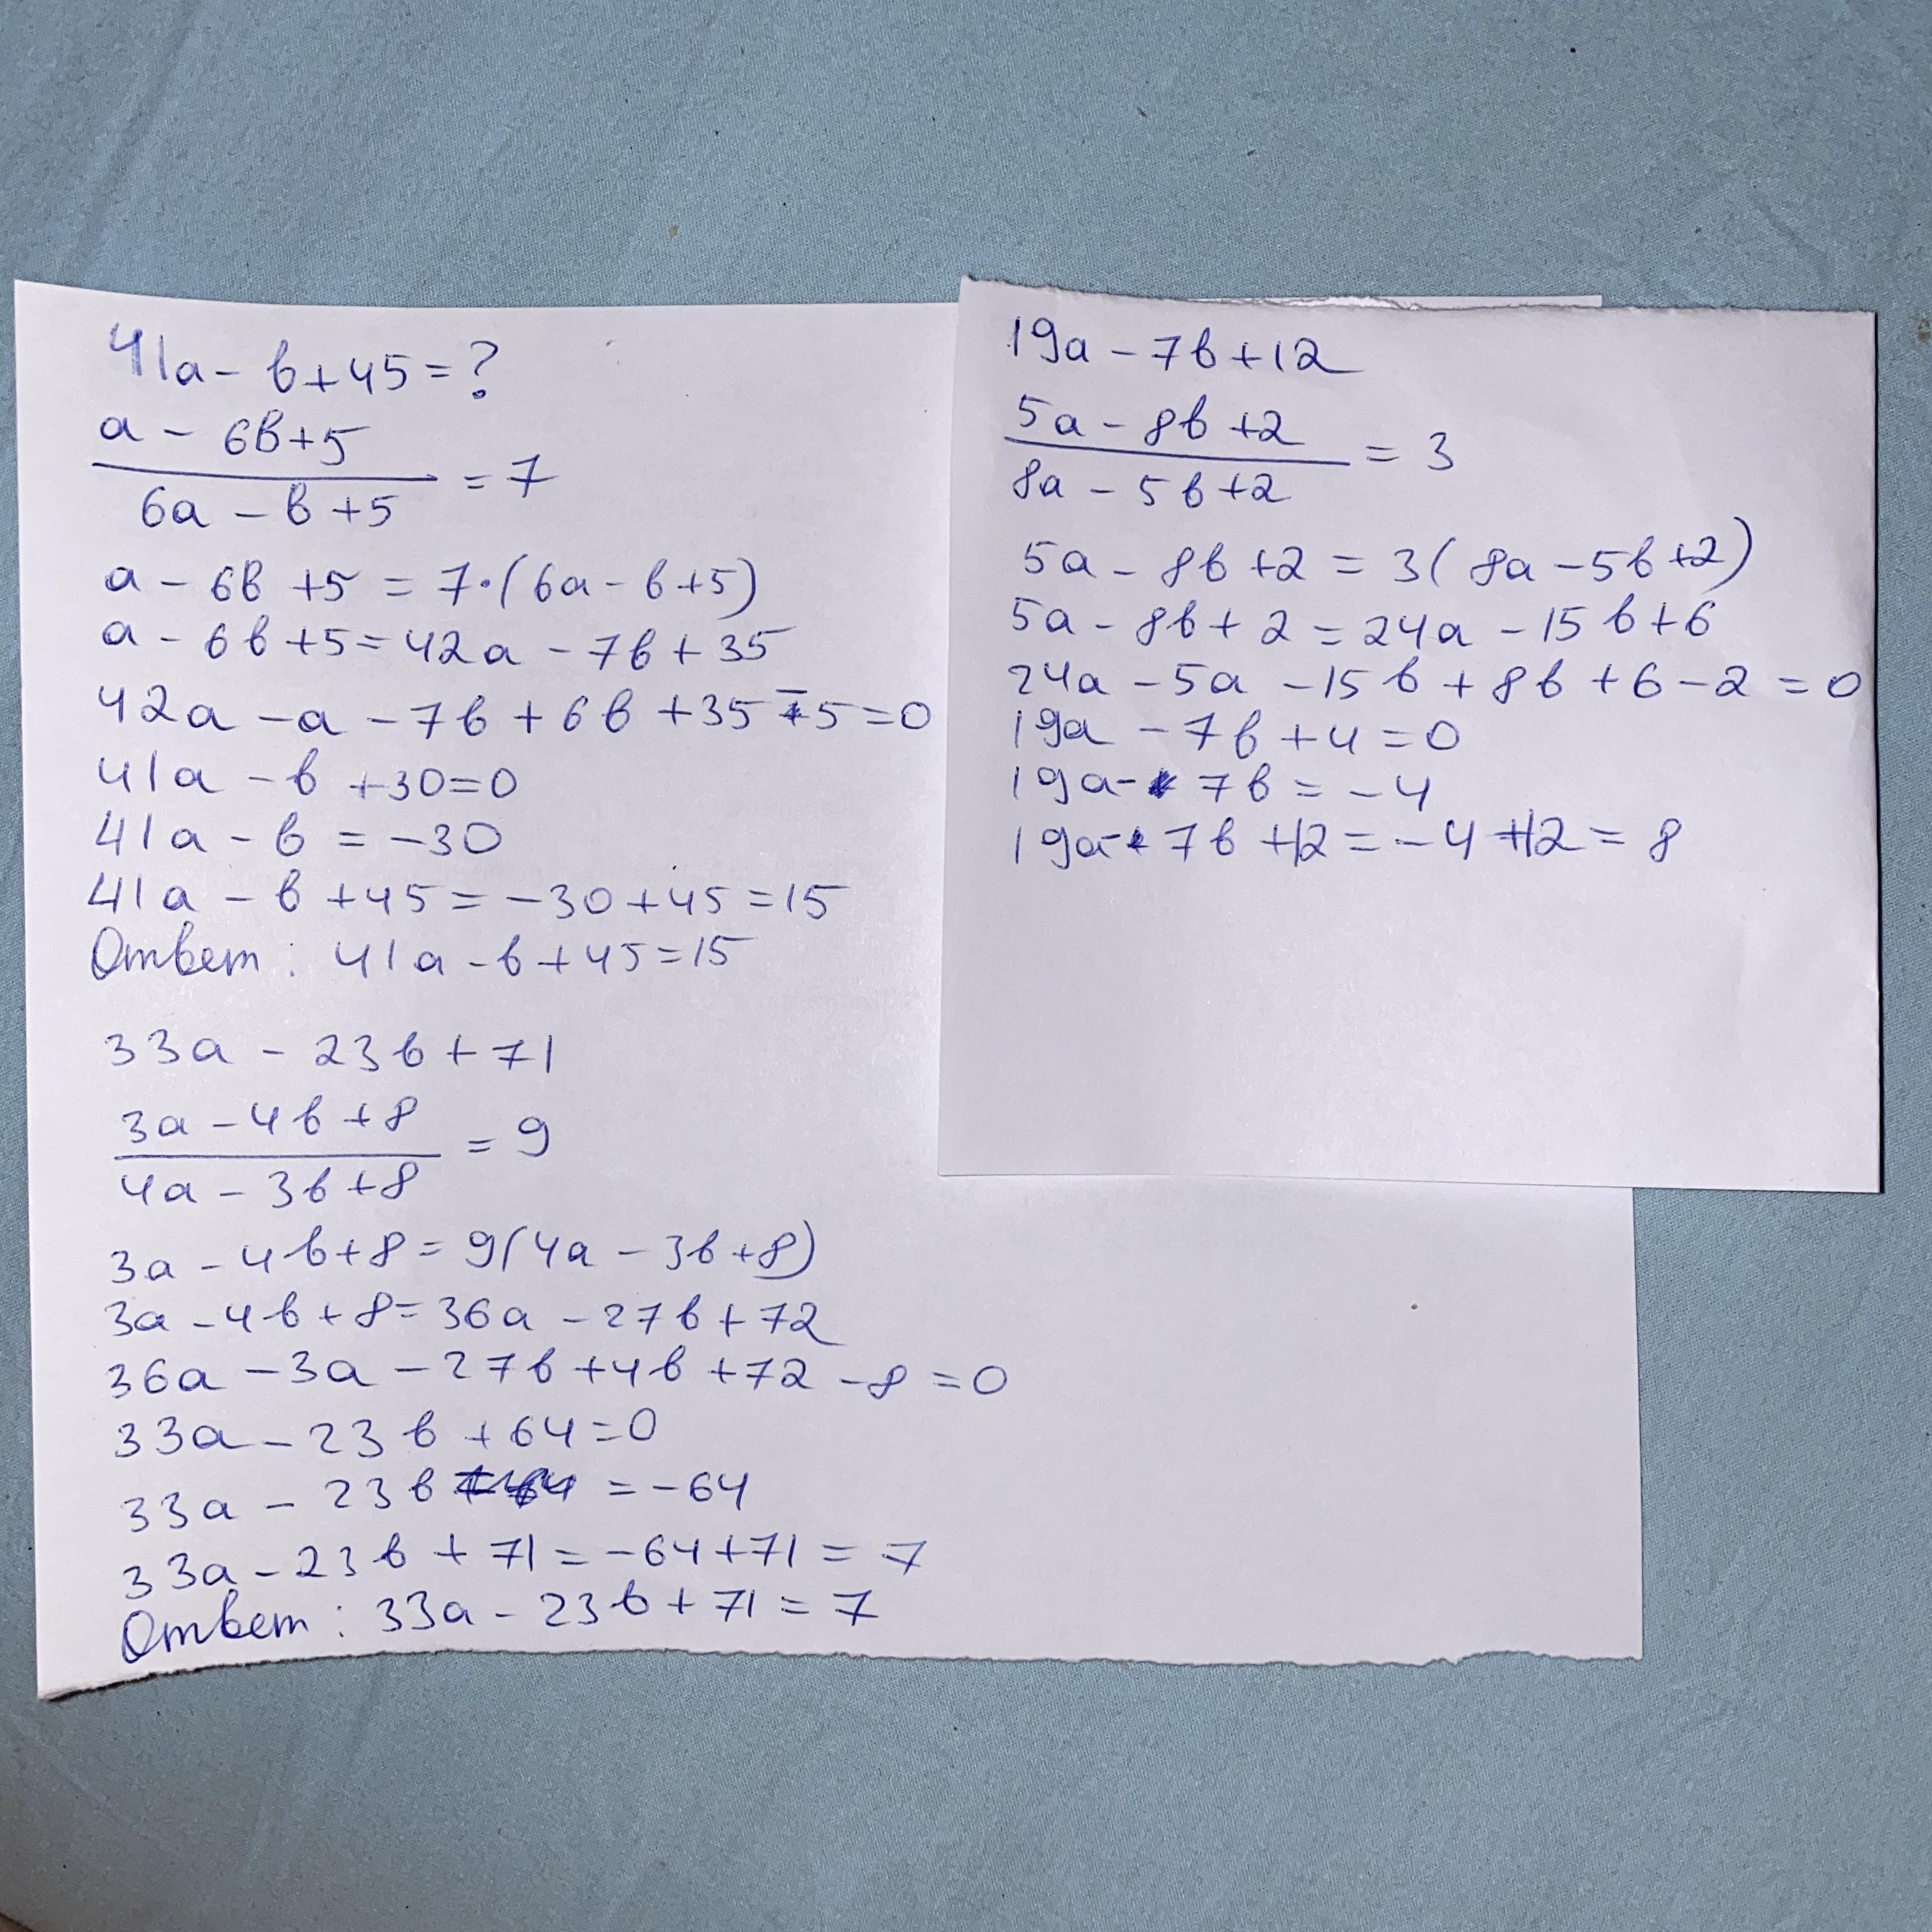 41a - b + 45 = ?
a - 6b + 5
= 7
6a - b + 5
a - 6b + 5 = 7·(6a - b + 5)
a - 6b + 5 = 42a - 7b + 35
42a - a - 7b + 6b + 35 - 5 = 0
41a - b + 30 = 0
41a - b = -30
41a - b + 45 = -30 + 45 = 15
Ответ: 41a - b + 45 = 15
33a - 23b + 71
3a - 4b + 8
= 9
4a - 3b + 8
3a - 4b + 8 = 9(4a - 3b + 8)
3a - 4b + 8 = 36a - 27b + 72
36a - 3a - 27b + 4b + 72 - 8 = 0
33a - 23b + 64 = 0
33a - 23b = -64
33a - 23b + 71 = -64 + 71 = 7
Ответ: 33a - 23b + 71 = 7
19a - 7b + 12
5a - 8b + 2
= 3
8a - 5b + 2
5a - 8b + 2 = 3(8a - 5b + 2)
5a - 8b + 2 = 24a - 15b + 6
24a - 5a - 15b + 8b + 6 - 2 = 0
19a - 7b + 4 = 0
19a - 7b = -4
19a - 7b + 12 = -4 + 12 = 8